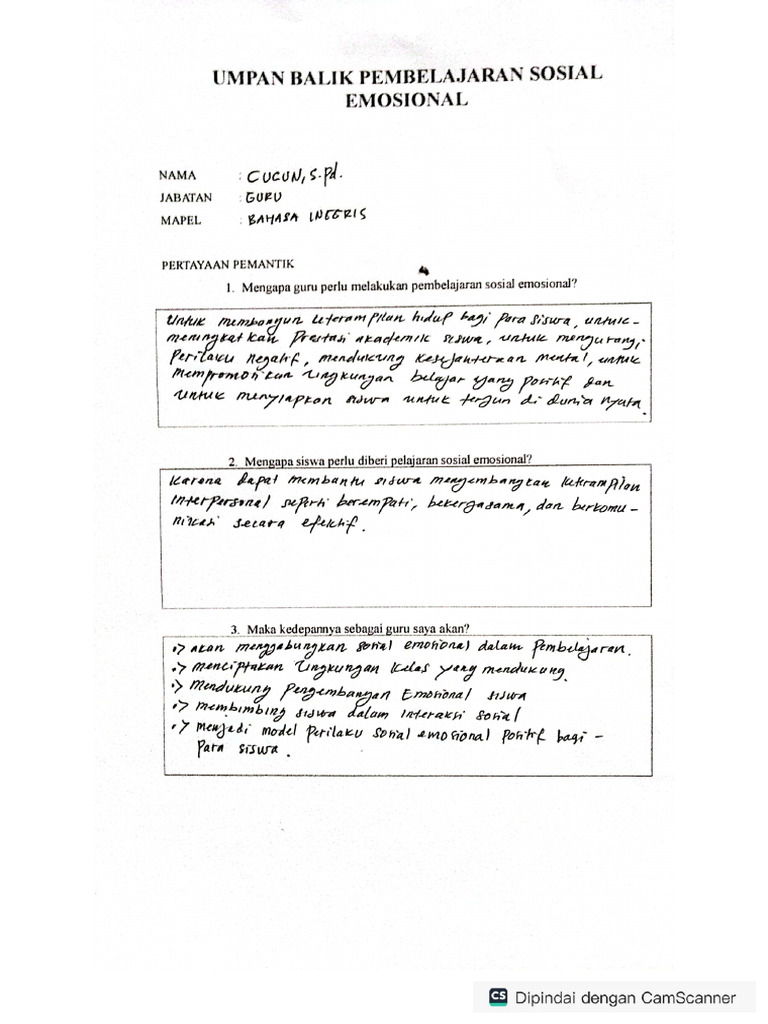 UMPAN BALIK PEMBELAJARAN SOSIAL
EMOSIONAL
NAMA : CUCUN, S.Pd.
JABATAN : GURU
MAPEL : BAHASA INGGRIS
PERTAYAAN PEMANTIK
1. Mengapa guru perlu melakukan pembelajaran sosial emosional?
Untuk membangun keterampilan hidup bagi para siswa, untuk-
meningkatkan Prestasi akademik siswa, untuk mengurangi
Perilaku negatif, mendukung kesejahteraan mental, untuk
mempromosikan lingkungan belajar yang positif dan
untuk menyiapkan siswa untuk terjun di dunia nyata.
2. Mengapa siswa perlu diberi pelajaran sosial emosional?
Karena dapat membantu siswa mengembangkan keterampilan
interpersonal seperti berempati, bekerjasama, dan berkomu-
nikasi secara efektif.
3. Maka kedepannya sebagai guru saya akan?
.> akan menggabungkan sosial emosional dalam Pembelajaran.
.> menciptakan lingkungan kelas yang mendukung.
.> Mendukung Pengembangan Emosional siswa
.> membimbing siswa dalam interaksi sosial
.> menjadi model Perilaku sosial emosional positif bagi-
Para siswa.
CS Dipindai dengan CamScanner